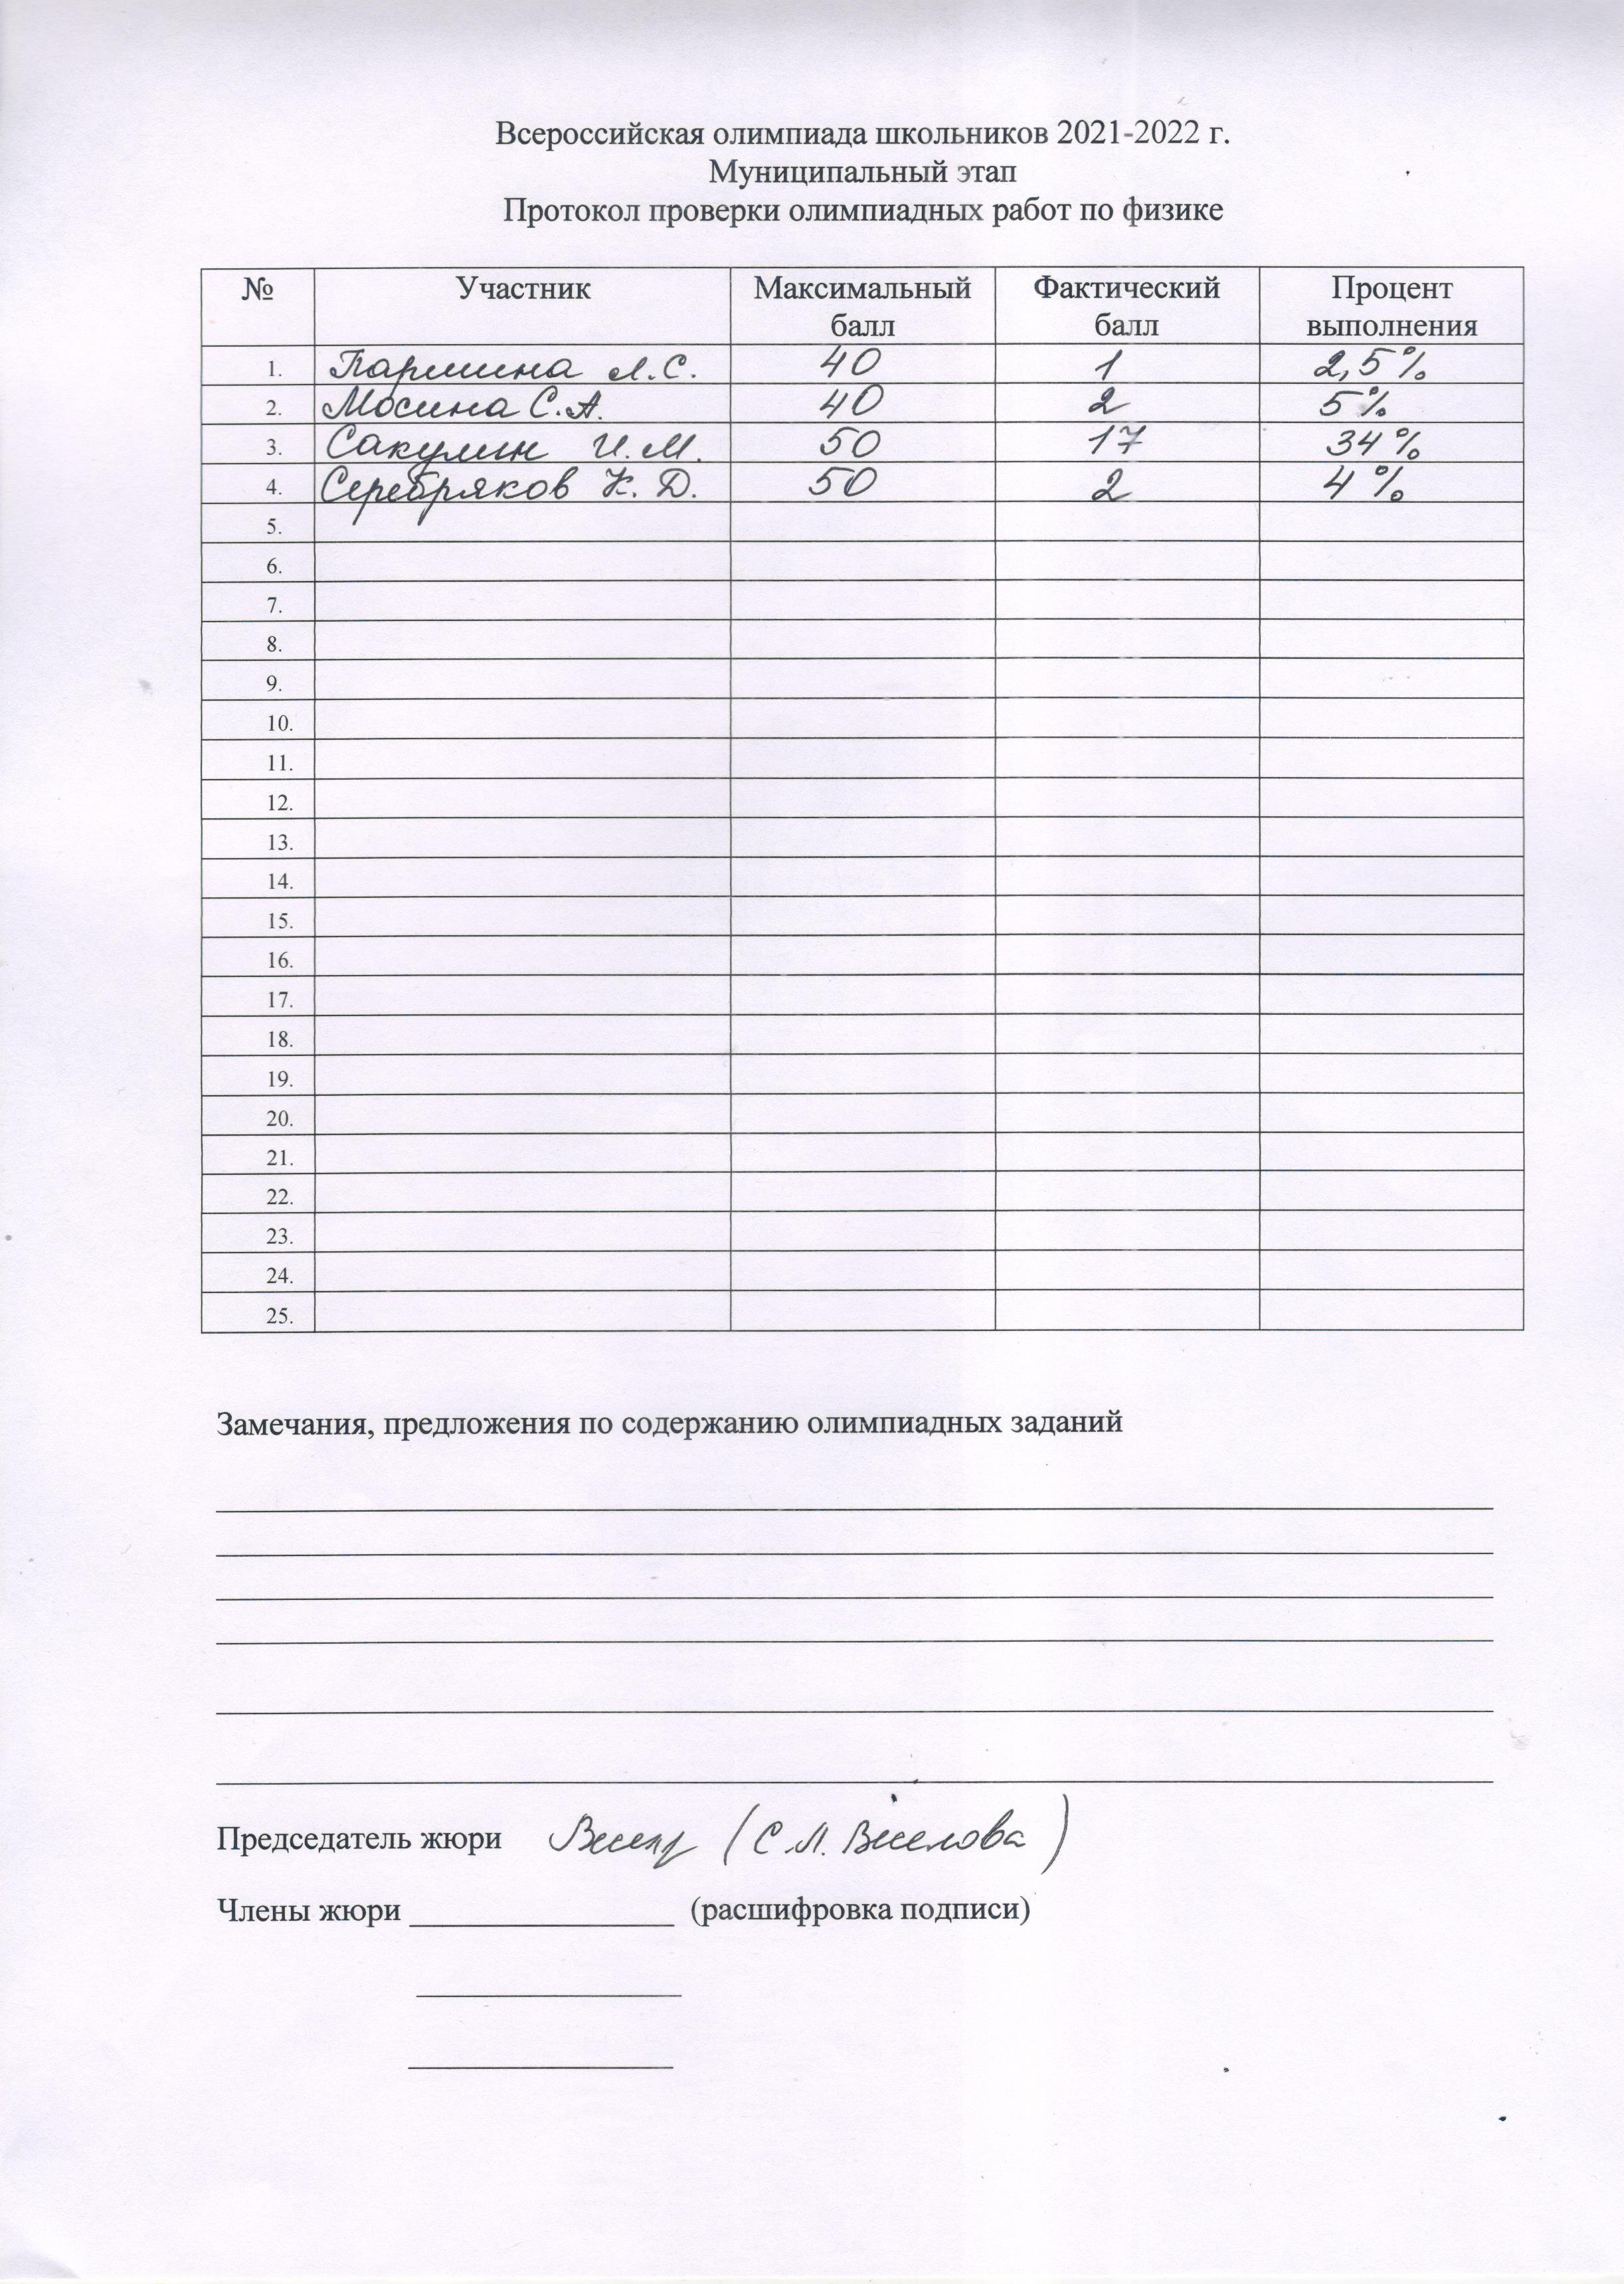 Всероссийская олимпиада школьников 2021-2022 г.
Муниципальный этап
Протокол проверки олимпиадных работ по физике
№ Участник Максимальный балл Фактический балл Процент выполнения
1. Паршина Л.С. 40 1 2,5%
2. Мосина С.А. 40 2 5%
3. Сакулин И.М. 50 17 34%
4. Серебряков К.Д. 50 2 4%
5.
6.
7.
8.
9.
10.
11.
12.
13.
14.
15.
16.
17.
18.
19.
20.
21.
22.
23.
24.
25.
Замечания, предложения по содержанию олимпиадных заданий
Председатель жюри (С.Л. Веселова)
Члены жюри (расшифровка подписи)